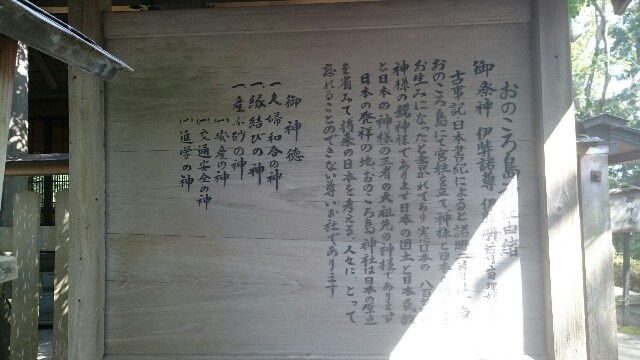 おのころ島 由緒
御祭神 伊弉諾尊 伊弉冊
古事記日本書記によると諾冊二神は 当
おのころ島にて宮柱を立て神様と日本
お生みになったと書かれてあり 実に日本の 八百
神様の親神様であります日本の国土と日本民族
と日本の神様の三者の大祖先の神様であります
日本の発祥の地おのころ島神社は日本の原点
を省みて将来の日本を考える 人々に とって
忘れることのできない尊いお社であります
御神徳
一、夫婦和合の神
一、縁結びの神
一、産ぶ砂の神
(一)安産の神
(一)交通安全の神
(一)進学の神